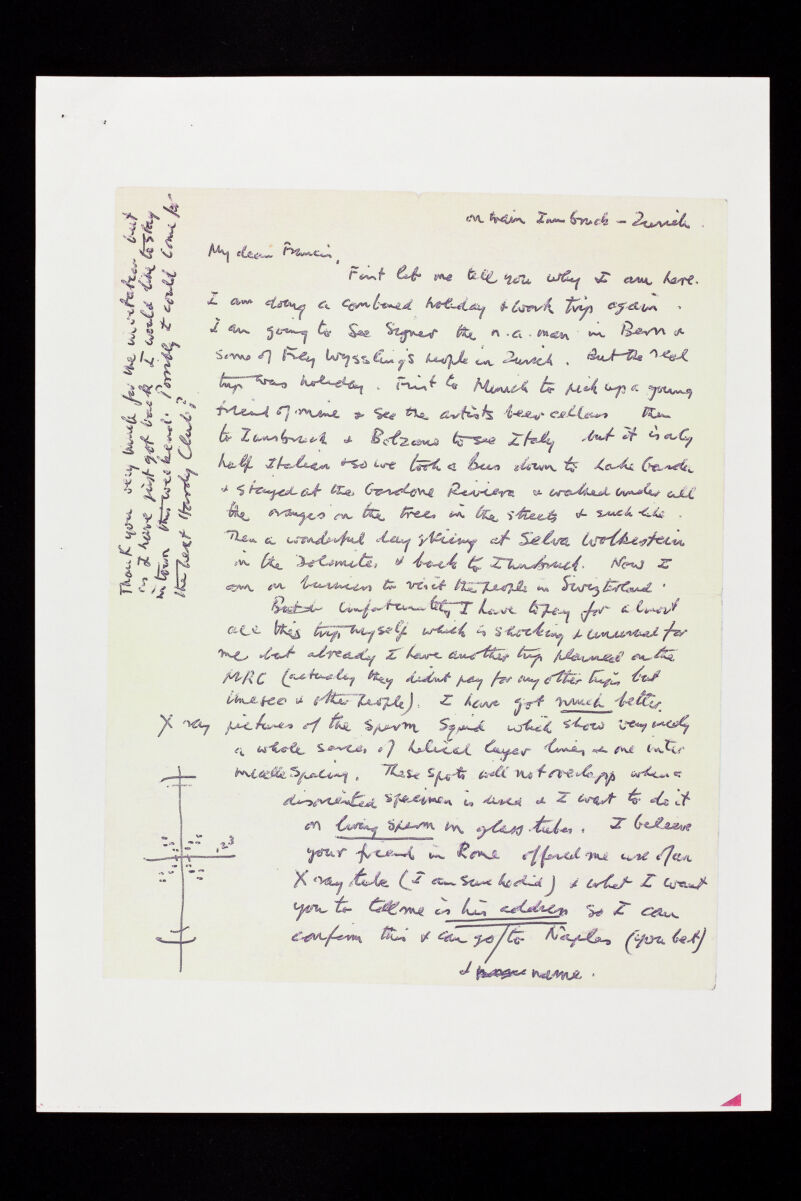 on train Innsbruck – Zurich.
My dear Francis,
First let me tell you why I am here.
I am doing a combined holiday & work trip again.
I am going to see Signer the n.a. man in Bern &
some of Frey Wyssling's people in Zurich. But the real
trip was holiday. First to Munich to pick up a young
friend of mine & see the artists beer cellars then
to Innsbruck & Bolzano to see Italy but it is only
half Italian & so we took a bus down to Lake Garda
& stayed at the Gardone Riviera & walked under all
the oranges on the trees in the streets & such like.
Then a wonderful day skiing at Selva Wolkestein
in the Dolomites & back to Innsbruck. Now I
am on business to visit the people in Switzerland.
But unfortunately I have to pay for almost
all this trip myself which is shocking & unusual for
me but already I have another trip planned on the
MRC (actually they didnt pay for my other trips but
Unesco & other people). I have got much better
X ray pictures of the sperm Squid which show very nicely
a whole series of helical layer lines & one inter
micelle spacing. These spots will not overlapp when a
disoriented specimen is used & I want to do it
on living sperm in glass tubes. I believe
your friend in Rome offered me use of an
X ray tube (I am sure he did) & what I want
you to tell me is his address so I can
confirm this & can go to Naples (you bet)
& name.
Thank you very much for the invitation but
as I have just got back I would like to stay
in town this weekend. Possibly I could come for
the next Hardy Club?
1 2 3